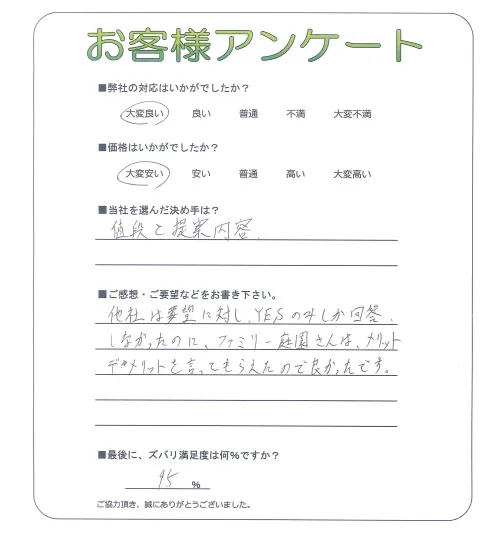 お客様アンケート
■弊社の対応はいかがでしたか？
大変良い 良い 普通 不満 大変不満
■価格はいかがでしたか？
大変安い 安い 普通 高い 大変高い
■当社を選んだ決め手は？
値段と提案内容.
■ご感想・ご要望などをお書き下さい。
他社は要望に対し、YESのみしか回答.
しなかったのに、ファミリー庭園さんは、メリット
デメリットを言ってもらえたので良かったです。
■最後に、ズバリ満足度は何%ですか？
95 %
ご協力頂き、誠にありがとうございました。